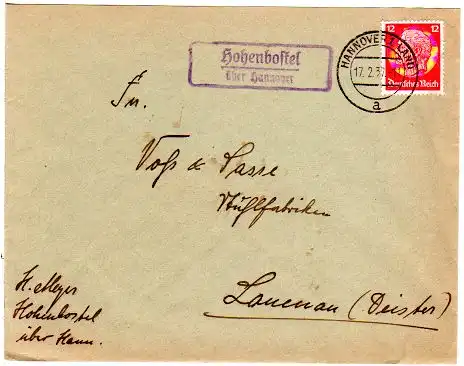 Hohenbostel
über Hannover
HANNOVER (LAND)
17. 2. 37
a
12 12
Deutsches Reich
Fn.
Voß & Sasse
Stuhlfabriken
Lauenau (Deister)
H. Meyer
Hohenbostel
über Hann.